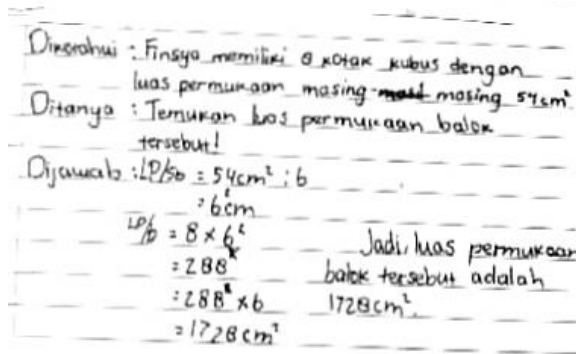 Diketahui : Finsya memiliki 8 kotak kubus dengan
luas permukaan masing masing 54cm²
Ditanya : Temukan luas permukaan balok
tersebut!
Dijawab : LP/sb = 54cm² : 6
= 6²cm
LP/b = 8 × 6²
= 288²
= 288² × 6
= 1728 cm²
Jadi, luas permukaan
balok tersebut adalah
1728cm².